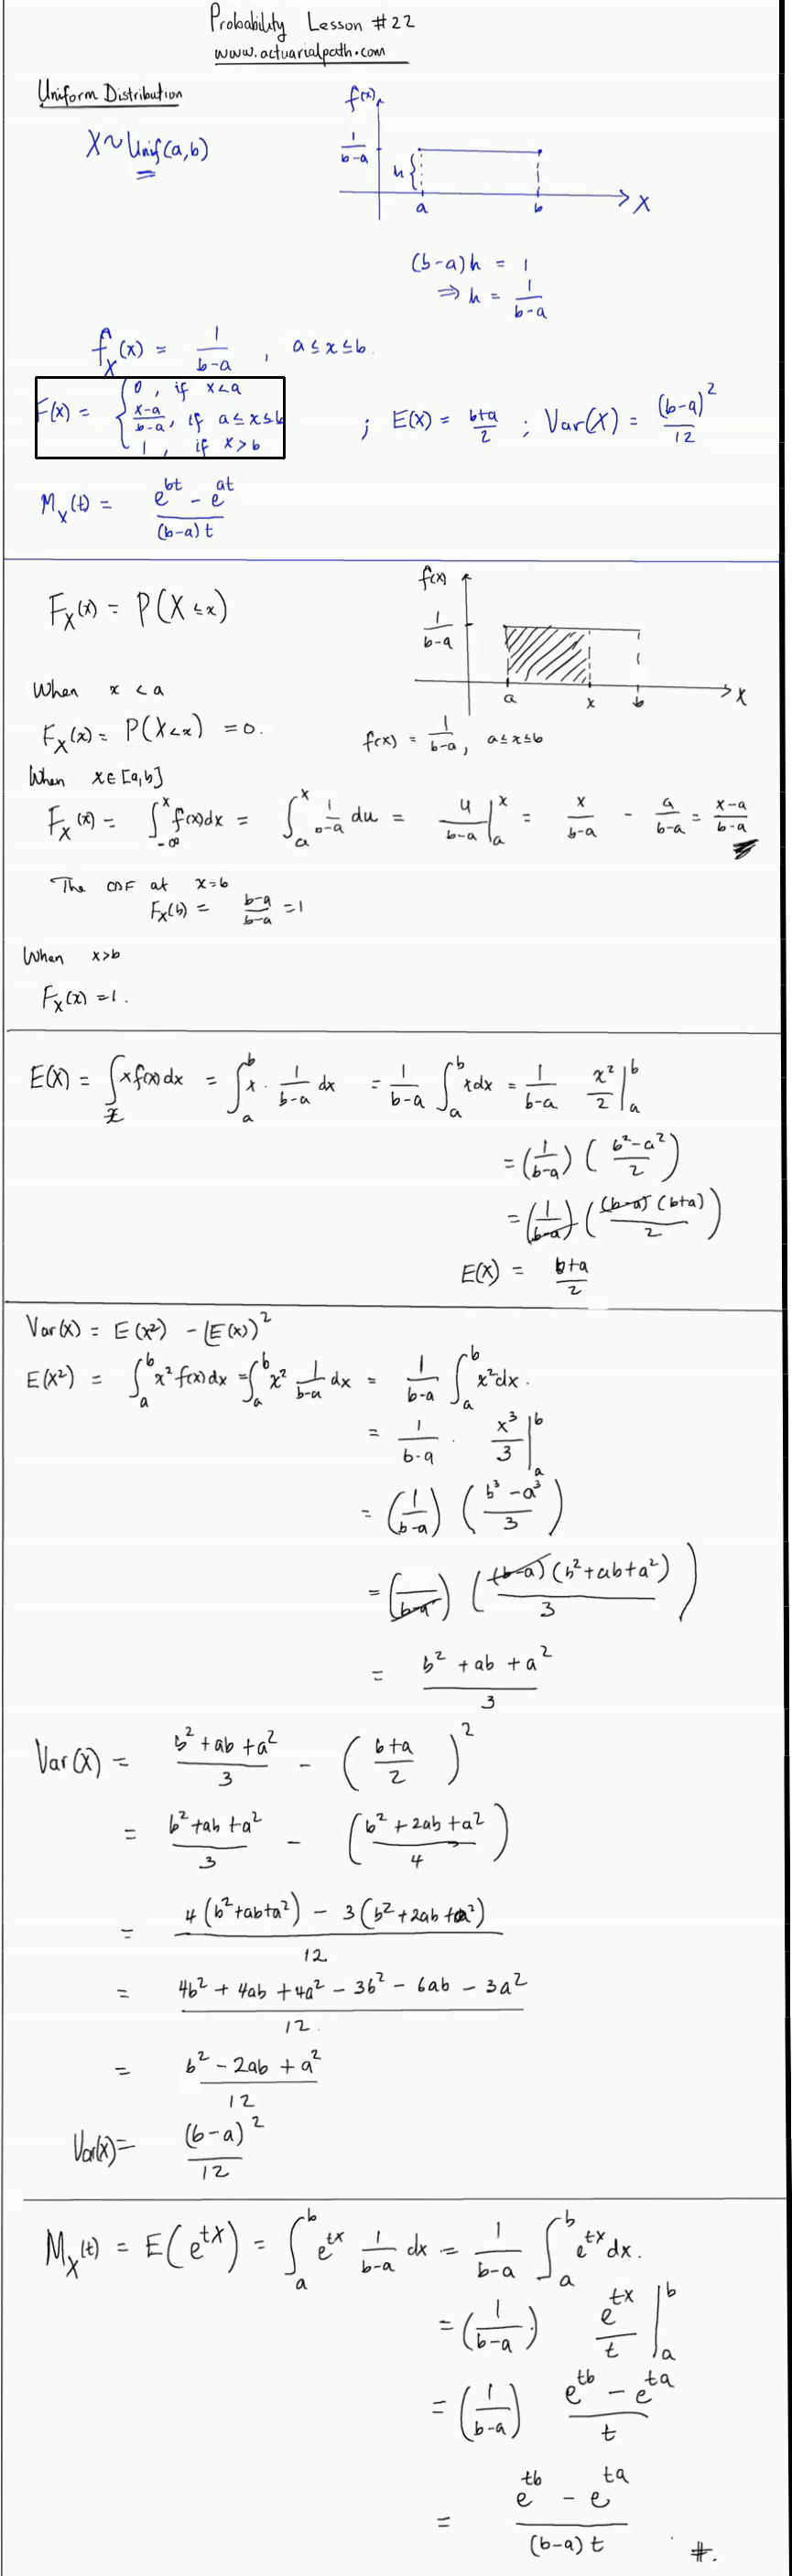 Probability Lesson #22
www.actuarialpath.com
Uniform Distribution
X~Unif(a,b)
f(x)
1/(b-a)
h{
a b X
(b-a)h = 1
⇒ h = 1/(b-a)
f_X(x) = 1/(b-a) , a≤x≤b.
F(x) = { 0, if x<a
(x-a)/(b-a), if a≤x≤b
1, if x>b
; E(X) = (b+a)/2 ; Var(X) = (b-a)^2/12
M_X(t) = (e^{bt} - e^{at})/((b-a)t)
F_X(x) = P(X≤x)
f(x)
1/(b-a)
a x b X
f(x) = 1/(b-a), a≤x≤b
When x<a
F_X(x) = P(X<x) = 0.
When x∈[a,b]
F_X(x) = ∫_{-∞}^{x} f(x)dx = ∫_a^x 1/(b-a) du = u/(b-a) |_a^x = x/(b-a) - a/(b-a) = (x-a)/(b-a)
The CDF at x=b
F_X(b) = (b-a)/(b-a) = 1
When x>b
F_X(x) = 1.
E(X) = ∫_x x f(x)dx = ∫_a^b x · 1/(b-a) dx = 1/(b-a) ∫_a^b x dx = 1/(b-a) x²/2 |_a^b
= (1/(b-a)) ((b²-a²)/2)
= (1/(b-a)) ((b-a)(b+a)/2)
E(X) = (b+a)/2
Var(X) = E(X²) - (E(X))²
E(X²) = ∫_a^b x² f(x)dx = ∫_a^b x² 1/(b-a) dx = 1/(b-a) ∫_a^b x² dx.
= 1/(b-a) · x³/3 |_a^b
= (1/(b-a)) ((b³-a³)/3)
= (1/(b-a)) ((b-a)(b²+ab+a²)/3)
= (b²+ab+a²)/3
Var(X) = (b²+ab+a²)/3 - ((b+a)/2)²
= (b²+ab+a²)/3 - ((b²+2ab+a²)/4)
= (4(b²+ab+a²) - 3(b²+2ab+a²))/12
= (4b²+4ab+4a²-3b²-6ab-3a²)/12.
= (b²-2ab+a²)/12
Var(X) = (b-a)²/12
M_X(t) = E(e^{tX}) = ∫_a^b e^{tx} 1/(b-a) dx = 1/(b-a) ∫_a^b e^{tx} dx.
= (1/(b-a)) e^{tx}/t |_a^b
= (1/(b-a)) (e^{tb} - e^{ta})/t
= (e^{tb} - e^{ta})/((b-a)t) #.